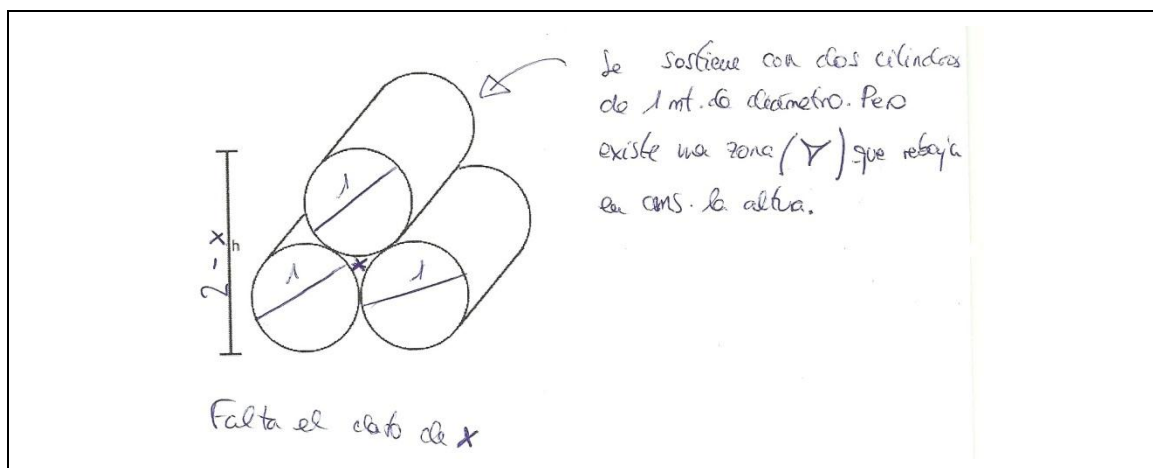 Se sostiene con dos cilindros
de 1 mt. de diámetro. Pero
existe una zona (Y) que rebaja
en cms. la altura.
1
2 - x
h
x
1
1
Falta el dato de x